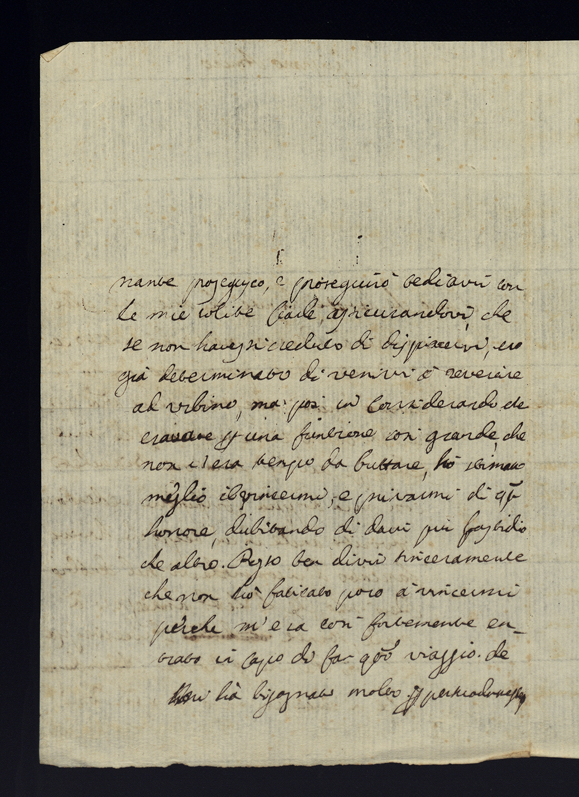 nante proseguo, e proseguirò tediarvi con
le mie solite ciarle, assicurandovi, che
se non havessi creduto di dispiacervi, ero
già determinato di venirvi à reverire
ad Urbino, ma poi in considerando che
eravate una funtione così grande, che
non c'era tempo da buttare, hò stimato
meglio e privarmi di
honore, dubitando di darvi più fastidio
che altro. Posso ben dirvi sinceramente
che non hò faticato poco à vincermi
perche m'era così fortemente en-
trato in capo di far viaggio. che
hà bisognato molto